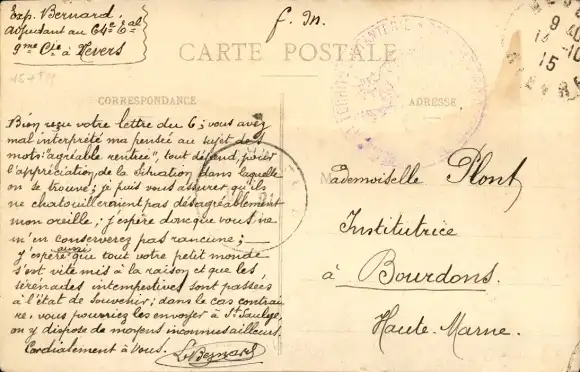 Exp. Bernard,
Adjudant au 64e Tal
9me Cie à Nevers
f. m.
CARTE POSTALE
CORRESPONDANCE
ADRESSE
Bien reçu votre lettre du 6; vous avez
mal interprété ma pensée au sujet des
mots "agréable rentrée", tout dépend, pour
l'appréciation, de la situation dans laquelle
on se trouve; je puis vous assurer qu'ils
ne chatouilleraient pas désagréablement
mon oreille; j'espère donc que vous ne
m'en conserverez pas rancune;
j'espère aussi que tout votre petit monde
s'est vite mis à la raison et que les
sérénades intempestives sont passées
à l'état de souvenir; dans le cas contrai
re, vous pourriez les envoyer à St Saulge,
on y dispose de moyens inconnus ailleurs.
Cordialement à Vous.
Bernard
Mademoiselle Plont
Institutrice
à Bourdons.
Haute-Marne.
9
15